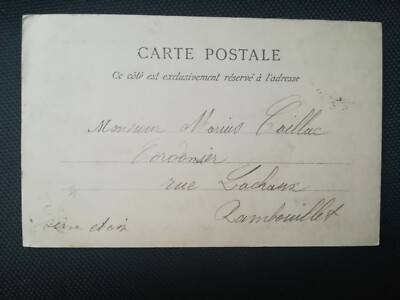 CARTE POSTALE
Ce côté est exclusivement réservé à l'adresse
Monsieur Marius Coillac
Cordonnier
rue Lachaux
Rambouillet
Seine et oise